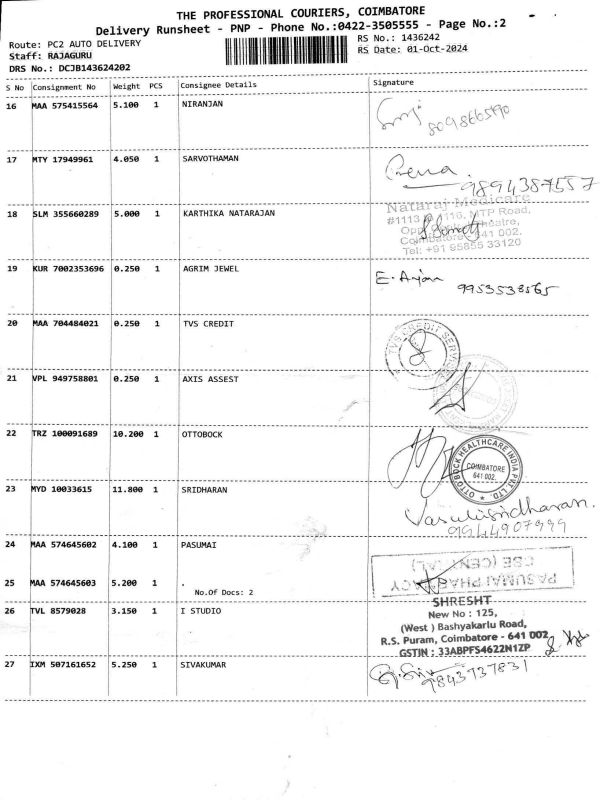 THE PROFESSIONAL COURIERS, COIMBATORE
Delivery Runsheet - PNP - Phone No.:0422-3505555 - Page No.:2
Route: PC2 AUTO DELIVERY
RS No.: 1436242
Staff: RAJAGURU
RS Date: 01-Oct-2024
DRS No.: DCJB143624202
S No Consignment No Weight PCS Consignee Details Signature
16 MAA 575415564 5.100 1 NIRANJAN
17 MTY 17949961 4.050 1 SARVOTHAMAN
9894387557
Nataraj Medicare
18 SLM 355660289 5.000 1 KARTHIKA NATARAJAN
MTP Road,
641 002.
Tel: +91 95855 33120
19 KUR 7002353696 0.250 1 AGRIM JEWEL
9953538565
20 MAA 704484021 0.250 1 TVS CREDIT
TVS CREDIT
21 VPL 949758801 0.250 1 AXIS ASSEST
22 TRZ 100091689 10.200 1 OTTOBOCK
OTTOBOCK HEALTHCARE INDIA PVT. LTD.
COIMBATORE
641 002.
23 MYD 10033615 11.800 1 SRIDHARAN
9944907999
24 MAA 574645602 4.100 1 PASUMAI
CSE (CENTRAL)
PASUMAI PHARMACY
25 MAA 574645603 5.200 1 .
No.Of Docs: 2
SHRESHT
26 TVL 8579028 3.150 1 I STUDIO
New No : 125,
(West ) Bashyakarlu Road,
R.S. Puram, Coimbatore - 641 002
GSTIN : 33ABPFS4622N1ZP
27 IXM 507161652 5.250 1 SIVAKUMAR
9843737831